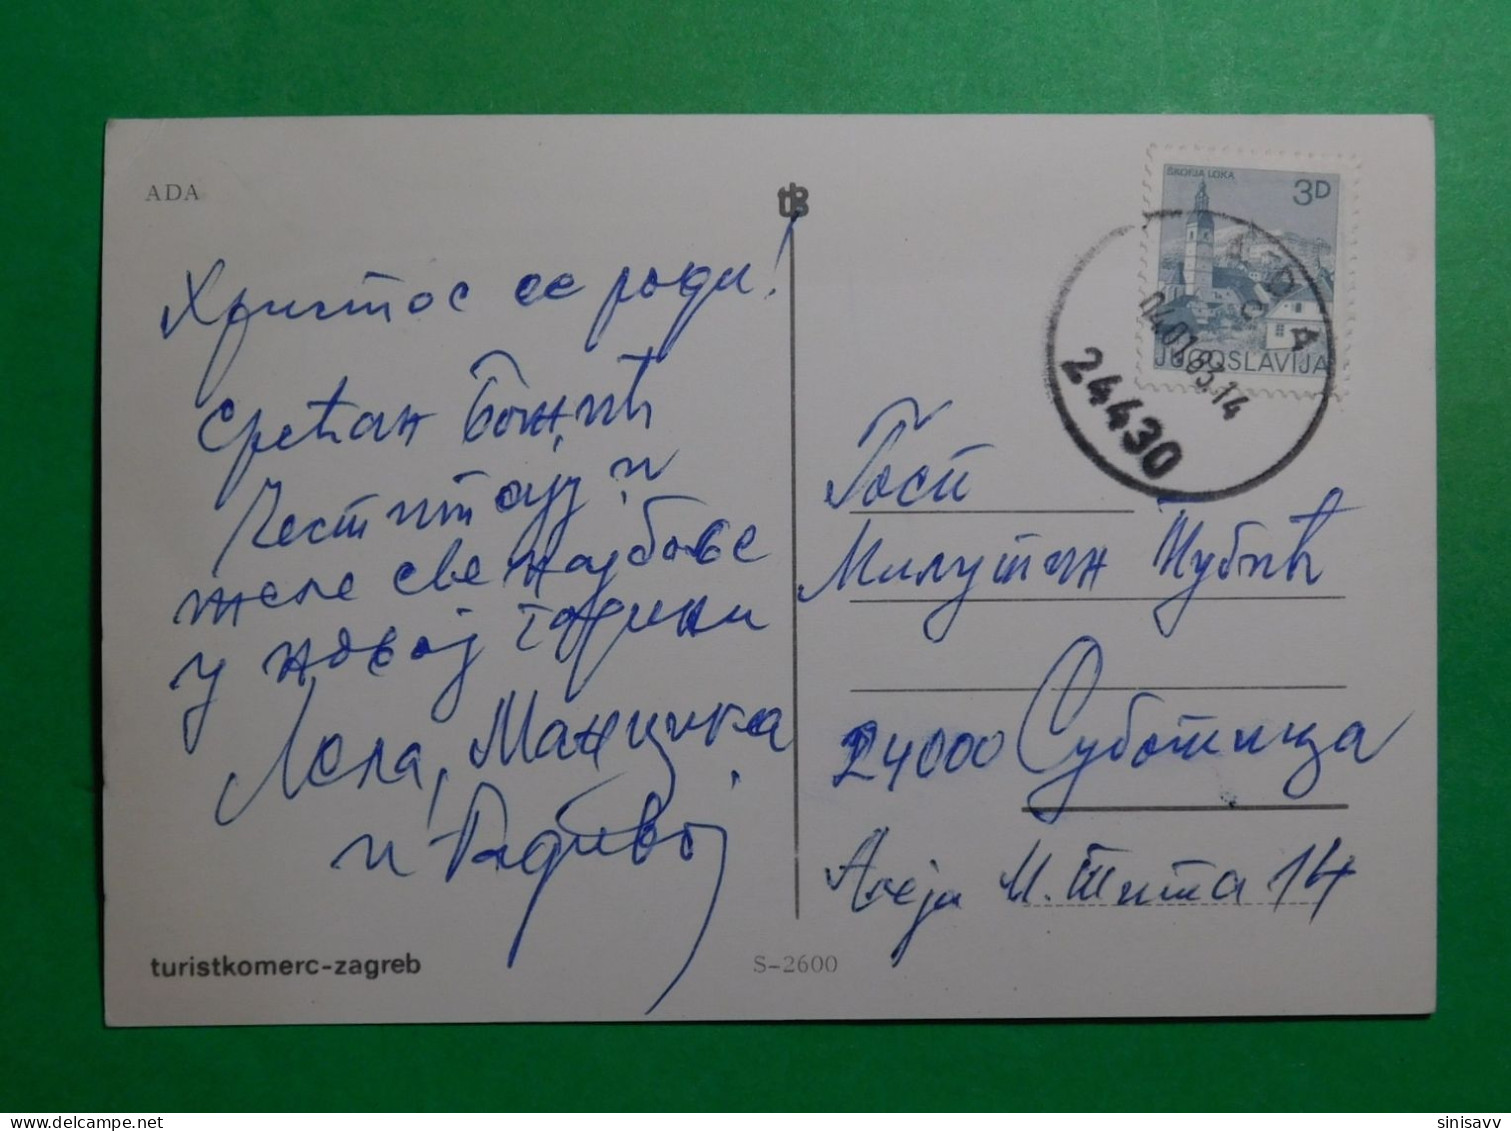 ADA
Христос се роди!
Срећан Божић
Честитају и
желе све најбоље
у новој години
Лела, Маницика
и Радивој
turistkomerc-zagreb
S-2600
ŠKOFJA LOKA
3D
JUGOSLAVIJA
04.01.83.14
24430
Госп
Милутин
24000 Суботица
Алеја М. Тита 14
sinisavv